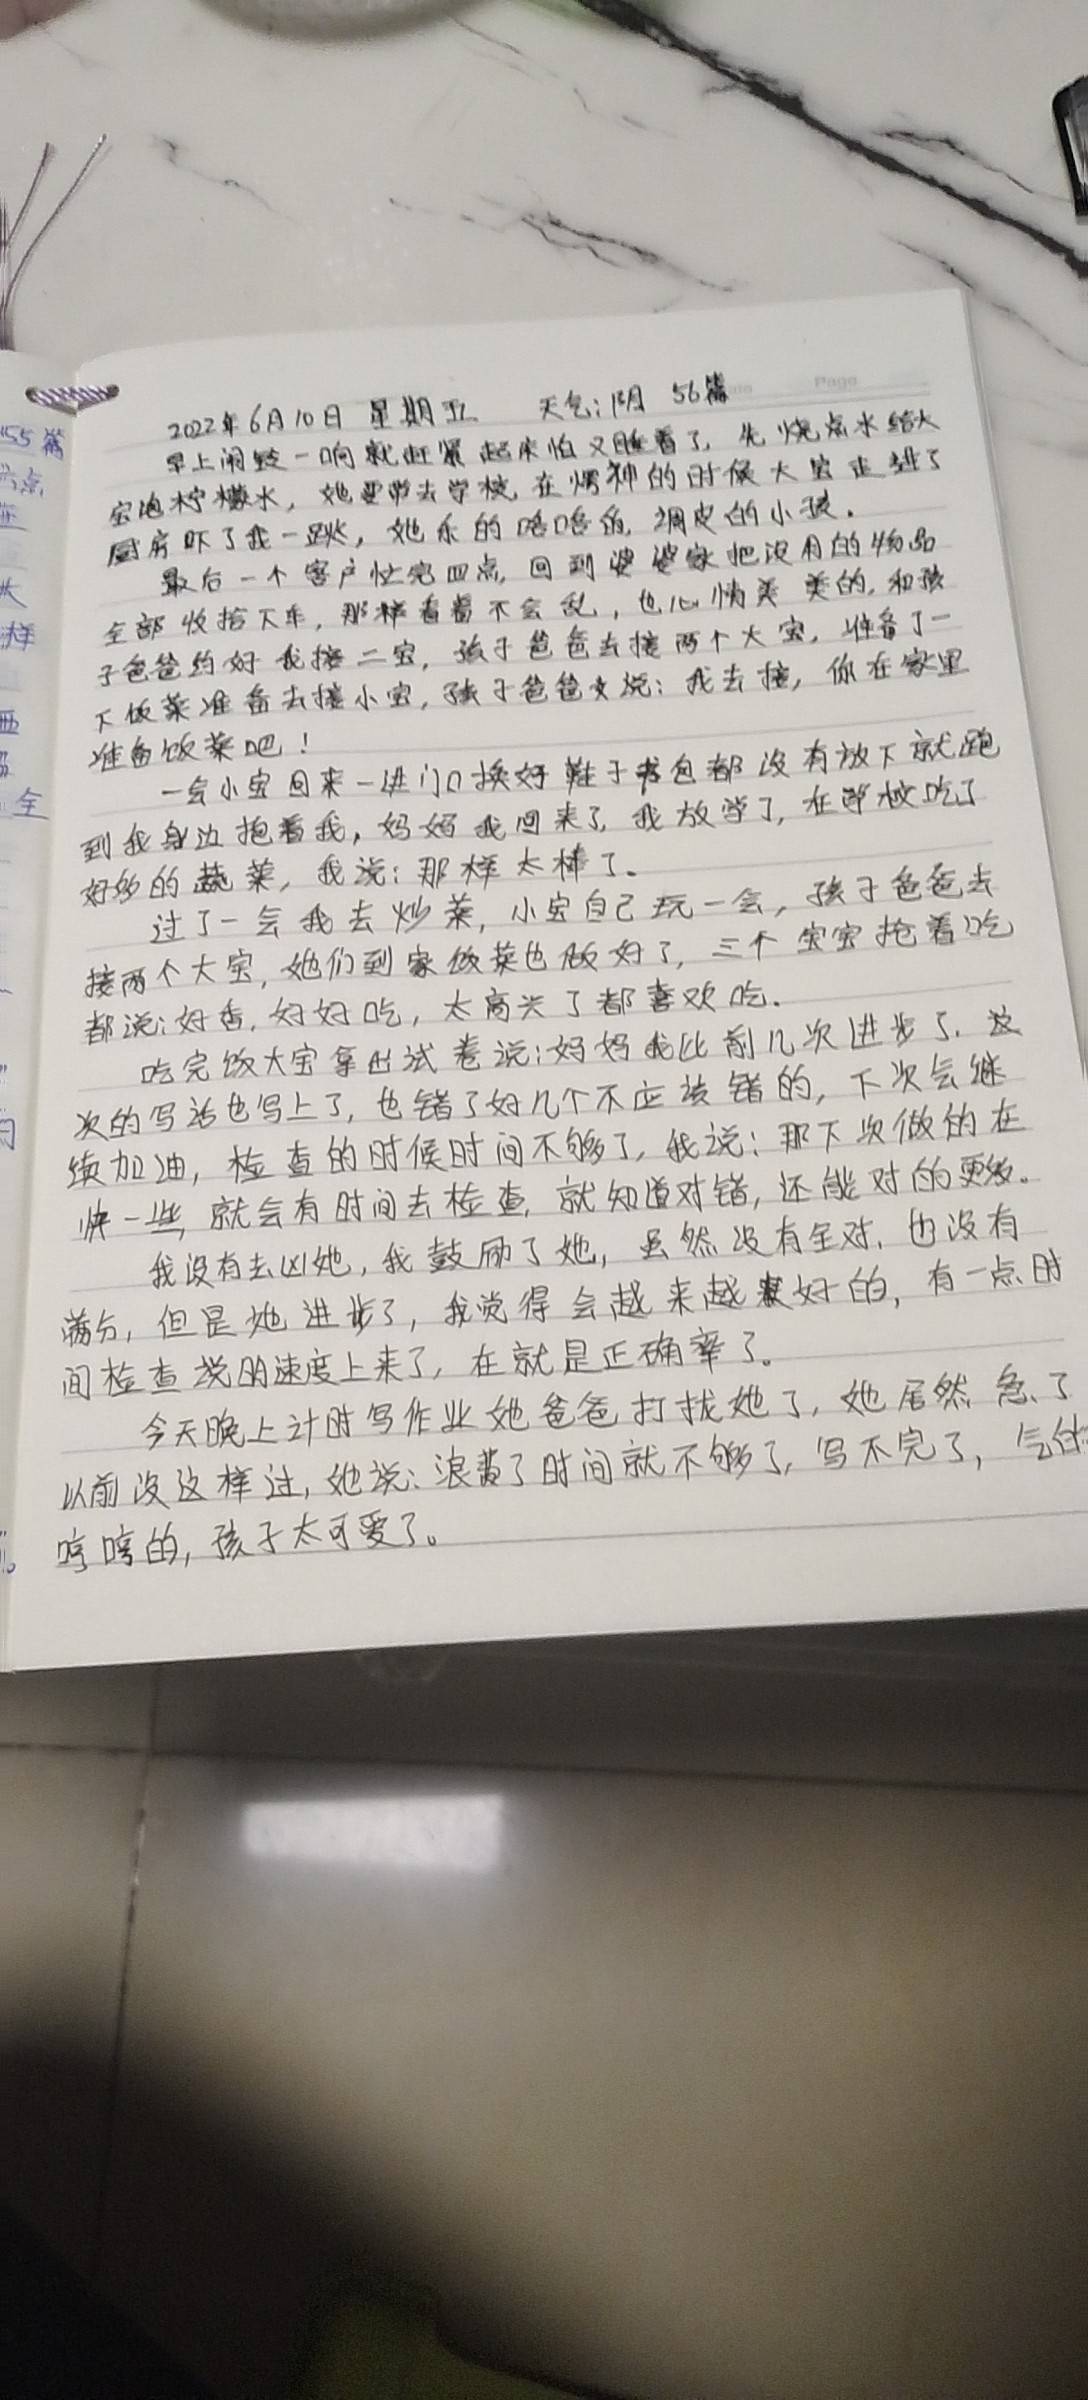 2022年6月10日 星期五 天气:阴 56篇
早上闹铃一响就赶紧起来怕又睡着了,先烧点水给大
宝泡柠檬水,她要带去学校,在愣神的时候大宝走进了
厨房吓了我一跳,她乐的咯咯的,调皮的小孩.
最后一个客户忙完四点,回到婆婆家把没用的物品
全部收拾下车,那样看着不会乱,也心情美美的,和孩
子爸爸约好我接二宝,孩子爸爸去接两个大宝,准备了一
下饭菜准备去接小宝,孩子爸爸又说:我去接,你在家里
准备饭菜吧!
一会小宝回来一进门口换好鞋子书包都没有放下就跑
到我身边抱着我,妈妈我回来了,我放学了,在学校吃了
好多的蔬菜,我说:那样太棒了.
过了一会我去炒菜,小宝自己玩一会,孩子爸爸去
接两个大宝,她们到家饭菜也做好了,三个宝宝抢着吃
都说:好香,好好吃,太高兴了都喜欢吃.
吃完饭大宝拿出试卷说:妈妈我比前几次进步了.这
次的写话也写上了,也错了好几个不应该错的,下次会继
续加油,检查的时候时间不够了,我说:那下次做的在
快一些,就会有时间去检查,就知道对错,还能对的更多。
我没有去凶她,我鼓励了她,虽然没有全对,也没有
满分,但是她进步了,我觉得会越来越好的,有一点时
间检查说明速度上来了,在就是正确率了。
今天晚上计时写作业她爸爸打扰她了,她居然急了
以前没这样过,她说:浪费了时间就不够了,写不完了,气
哼哼的,孩子太可爱了。
55篇
六点
大
样
西
全